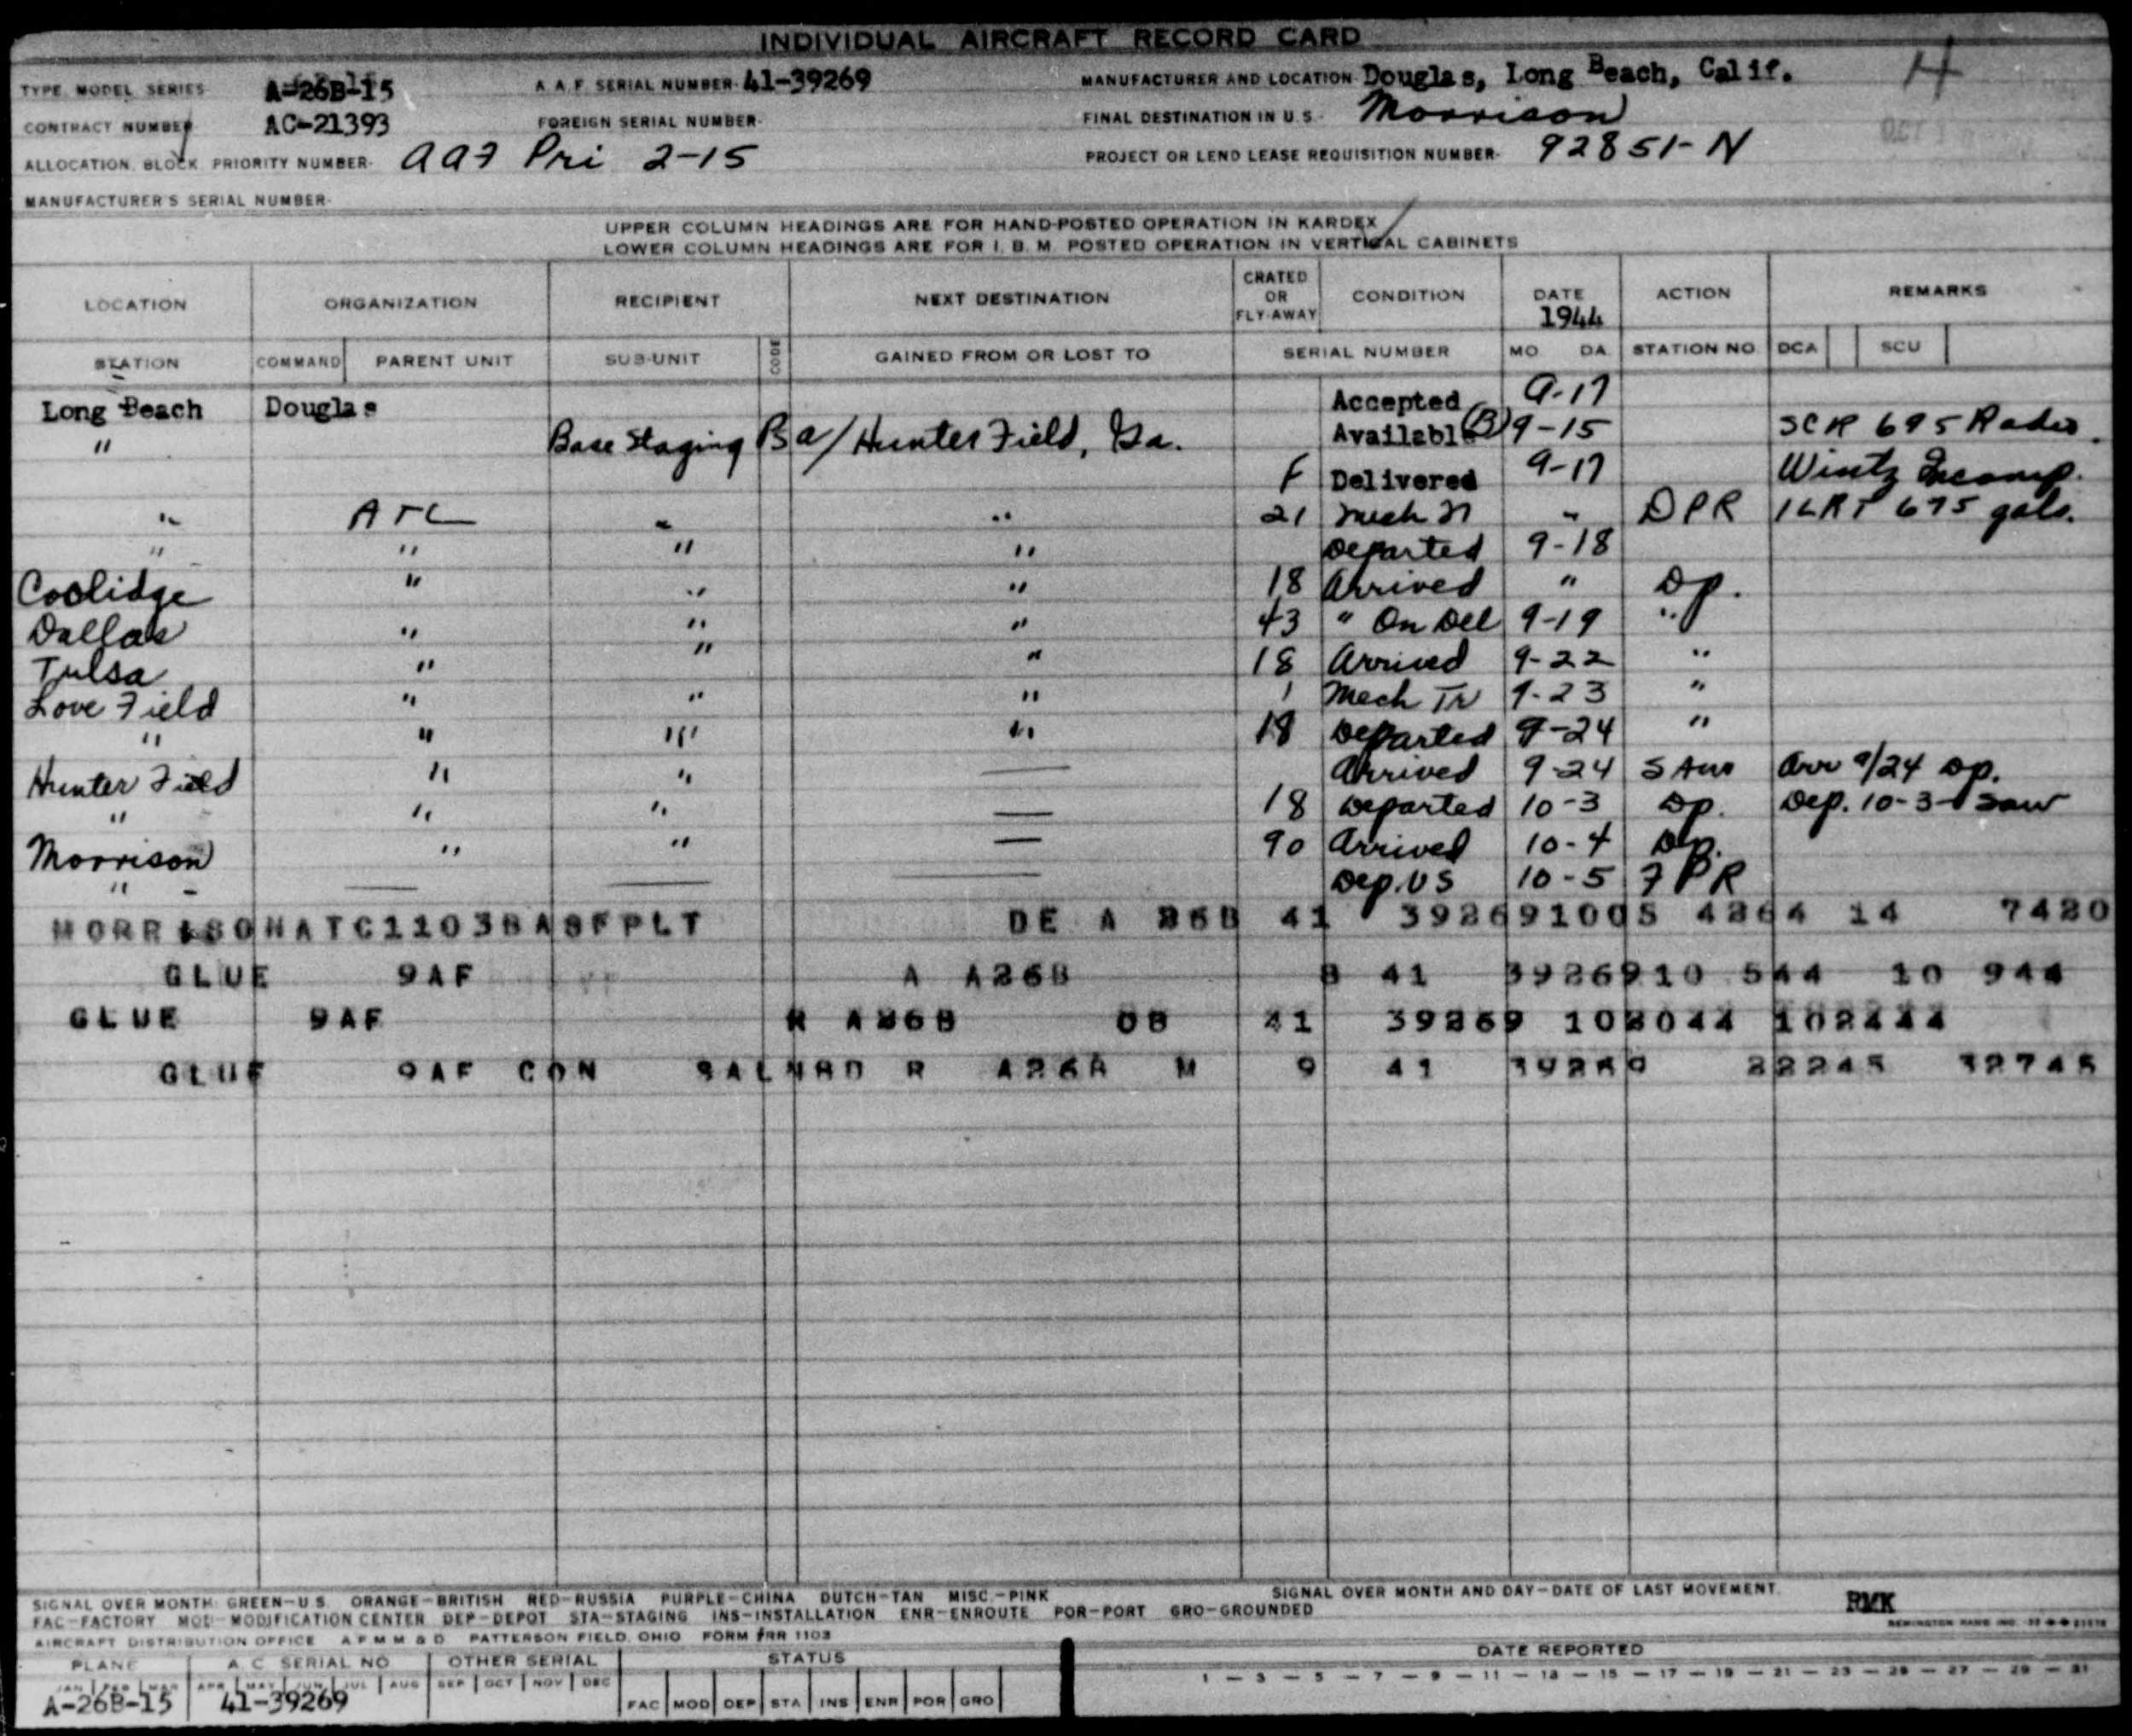 INDIVIDUAL AIRCRAFT RECORD CARD
TYPE, MODEL, SERIES A-26B-15 A.A.F. SERIAL NUMBER- 41-39269 MANUFACTURER AND LOCATION- Douglas, Long Beach, Calif. H
CONTRACT NUMBER AC-21393 FOREIGN SERIAL NUMBER- FINAL DESTINATION IN U.S.- Morrison
ALLOCATION, BLOCK, PRIORITY NUMBER- AAF Pri 2-15 PROJECT OR LEND LEASE REQUISITION NUMBER- 92851-N
MANUFACTURER'S SERIAL NUMBER-
UPPER COLUMN HEADINGS ARE FOR HAND-POSTED OPERATION IN KARDEX
LOWER COLUMN HEADINGS ARE FOR I.B.M. POSTED OPERATION IN VERTICAL CABINETS
LOCATION ORGANIZATION RECIPIENT NEXT DESTINATION CRATED OR FLY-AWAY CONDITION DATE 1944 ACTION REMARKS
STATION COMMAND PARENT UNIT SUB-UNIT CODE GAINED FROM OR LOST TO SERIAL NUMBER MO. DA. STATION NO. DCA SCU
Long Beach Douglas Accepted 9-17
" Base Staging Ba/Hunter Field, Ga. Available (B) 9-15 SCR 695 Radio.
F Delivered 9-17 Wintz Incomp.
" ATC " " 21 Mech " DPR 675 gals.
" " " " Departed 9-18
Coolidge " " " 18 Arrived " Dp.
Dallas " " " 43 " On Del 9-19 "
Tulsa " " " 18 Arrived 9-22 "
Love Field " " " 1 Mech Tr 9-23 "
" " " " 18 Departed 9-24 "
Hunter Field " " — Arrived 9-24 Sav Arr 9/24 Dp.
" " " — 18 Departed 10-3 Dp. Dep. 10-3- Sav
Morrison " " — 90 Arrived 10-4 Dp.
" - — — — Dep. US 10-5 FPR
MORRISONATC1103BASFPLT DE A 26B 41 392691005 4264 14 7420
GLUE 9AF A A26B B 41 3926910 544 10 944
GLUE 9AF R A26B 0B 41 39269 102044 102444
GLUE 9AF CON SALNBD R A26B M 9 41 39269 22245 32745
SIGNAL OVER MONTH: GREEN-U.S. ORANGE-BRITISH RED-RUSSIA PURPLE-CHINA DUTCH-TAN MISC.-PINK SIGNAL OVER MONTH AND DAY-DATE OF LAST MOVEMENT.
FAC-FACTORY MOD-MODIFICATION CENTER DEP-DEPOT STA-STAGING INS-INSTALLATION ENR-ENROUTE POR-PORT GRO-GROUNDED RMK
AIRCRAFT DISTRIBUTION OFFICE A F M M & D PATTERSON FIELD, OHIO FORM #RR 1103
PLANE A.C. SERIAL NO. OTHER SERIAL STATUS DATE REPORTED
JAN FEB MAR APR MAY JUN JUL AUG SEP OCT NOV DEC 1 — 3 — 5 — 7 — 9 — 11 — 13 — 15 — 17 — 19 — 21 — 23 — 25 — 27 — 29 — 31
A-26B-15 41-39269 FAC MOD DEP STA INS ENR POR GRO